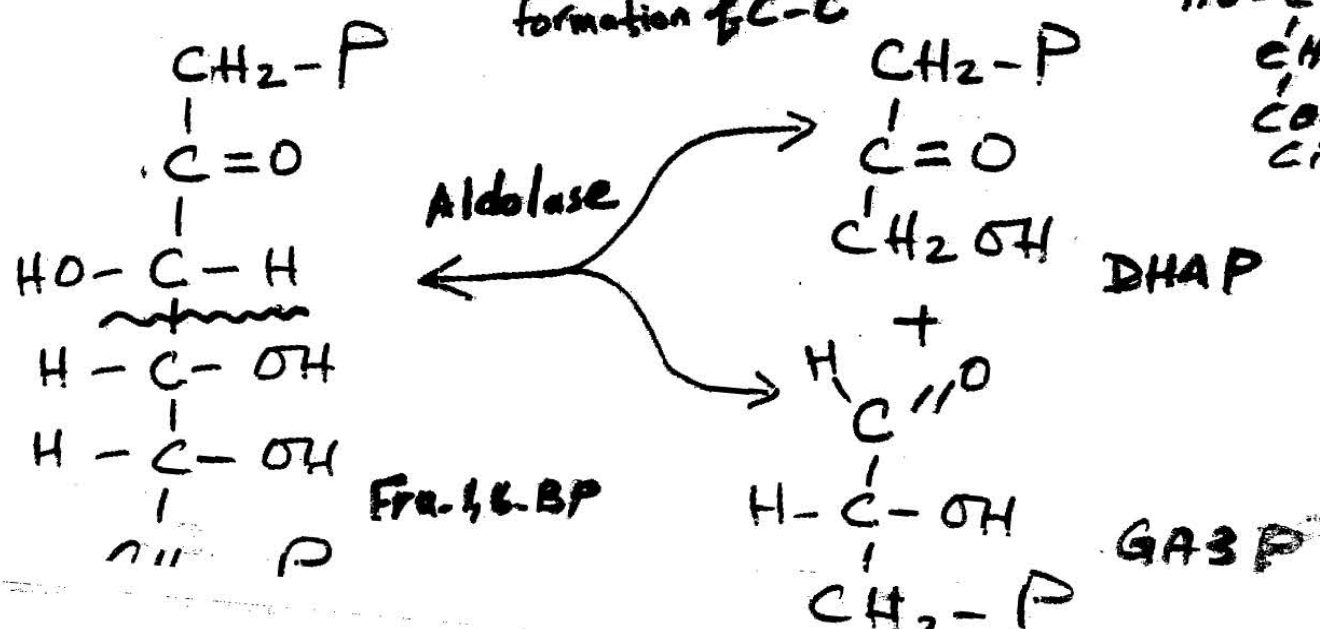 formation of C-C
CH2-P
C=O
HO-C-H
H-C-OH
H-C-OH
P
Fru-1,6-BP
Aldolase
CH2-P
C=O
CH2OH
DHAP
+
H
O
C
H-C-OH
CH2-P
GA3P